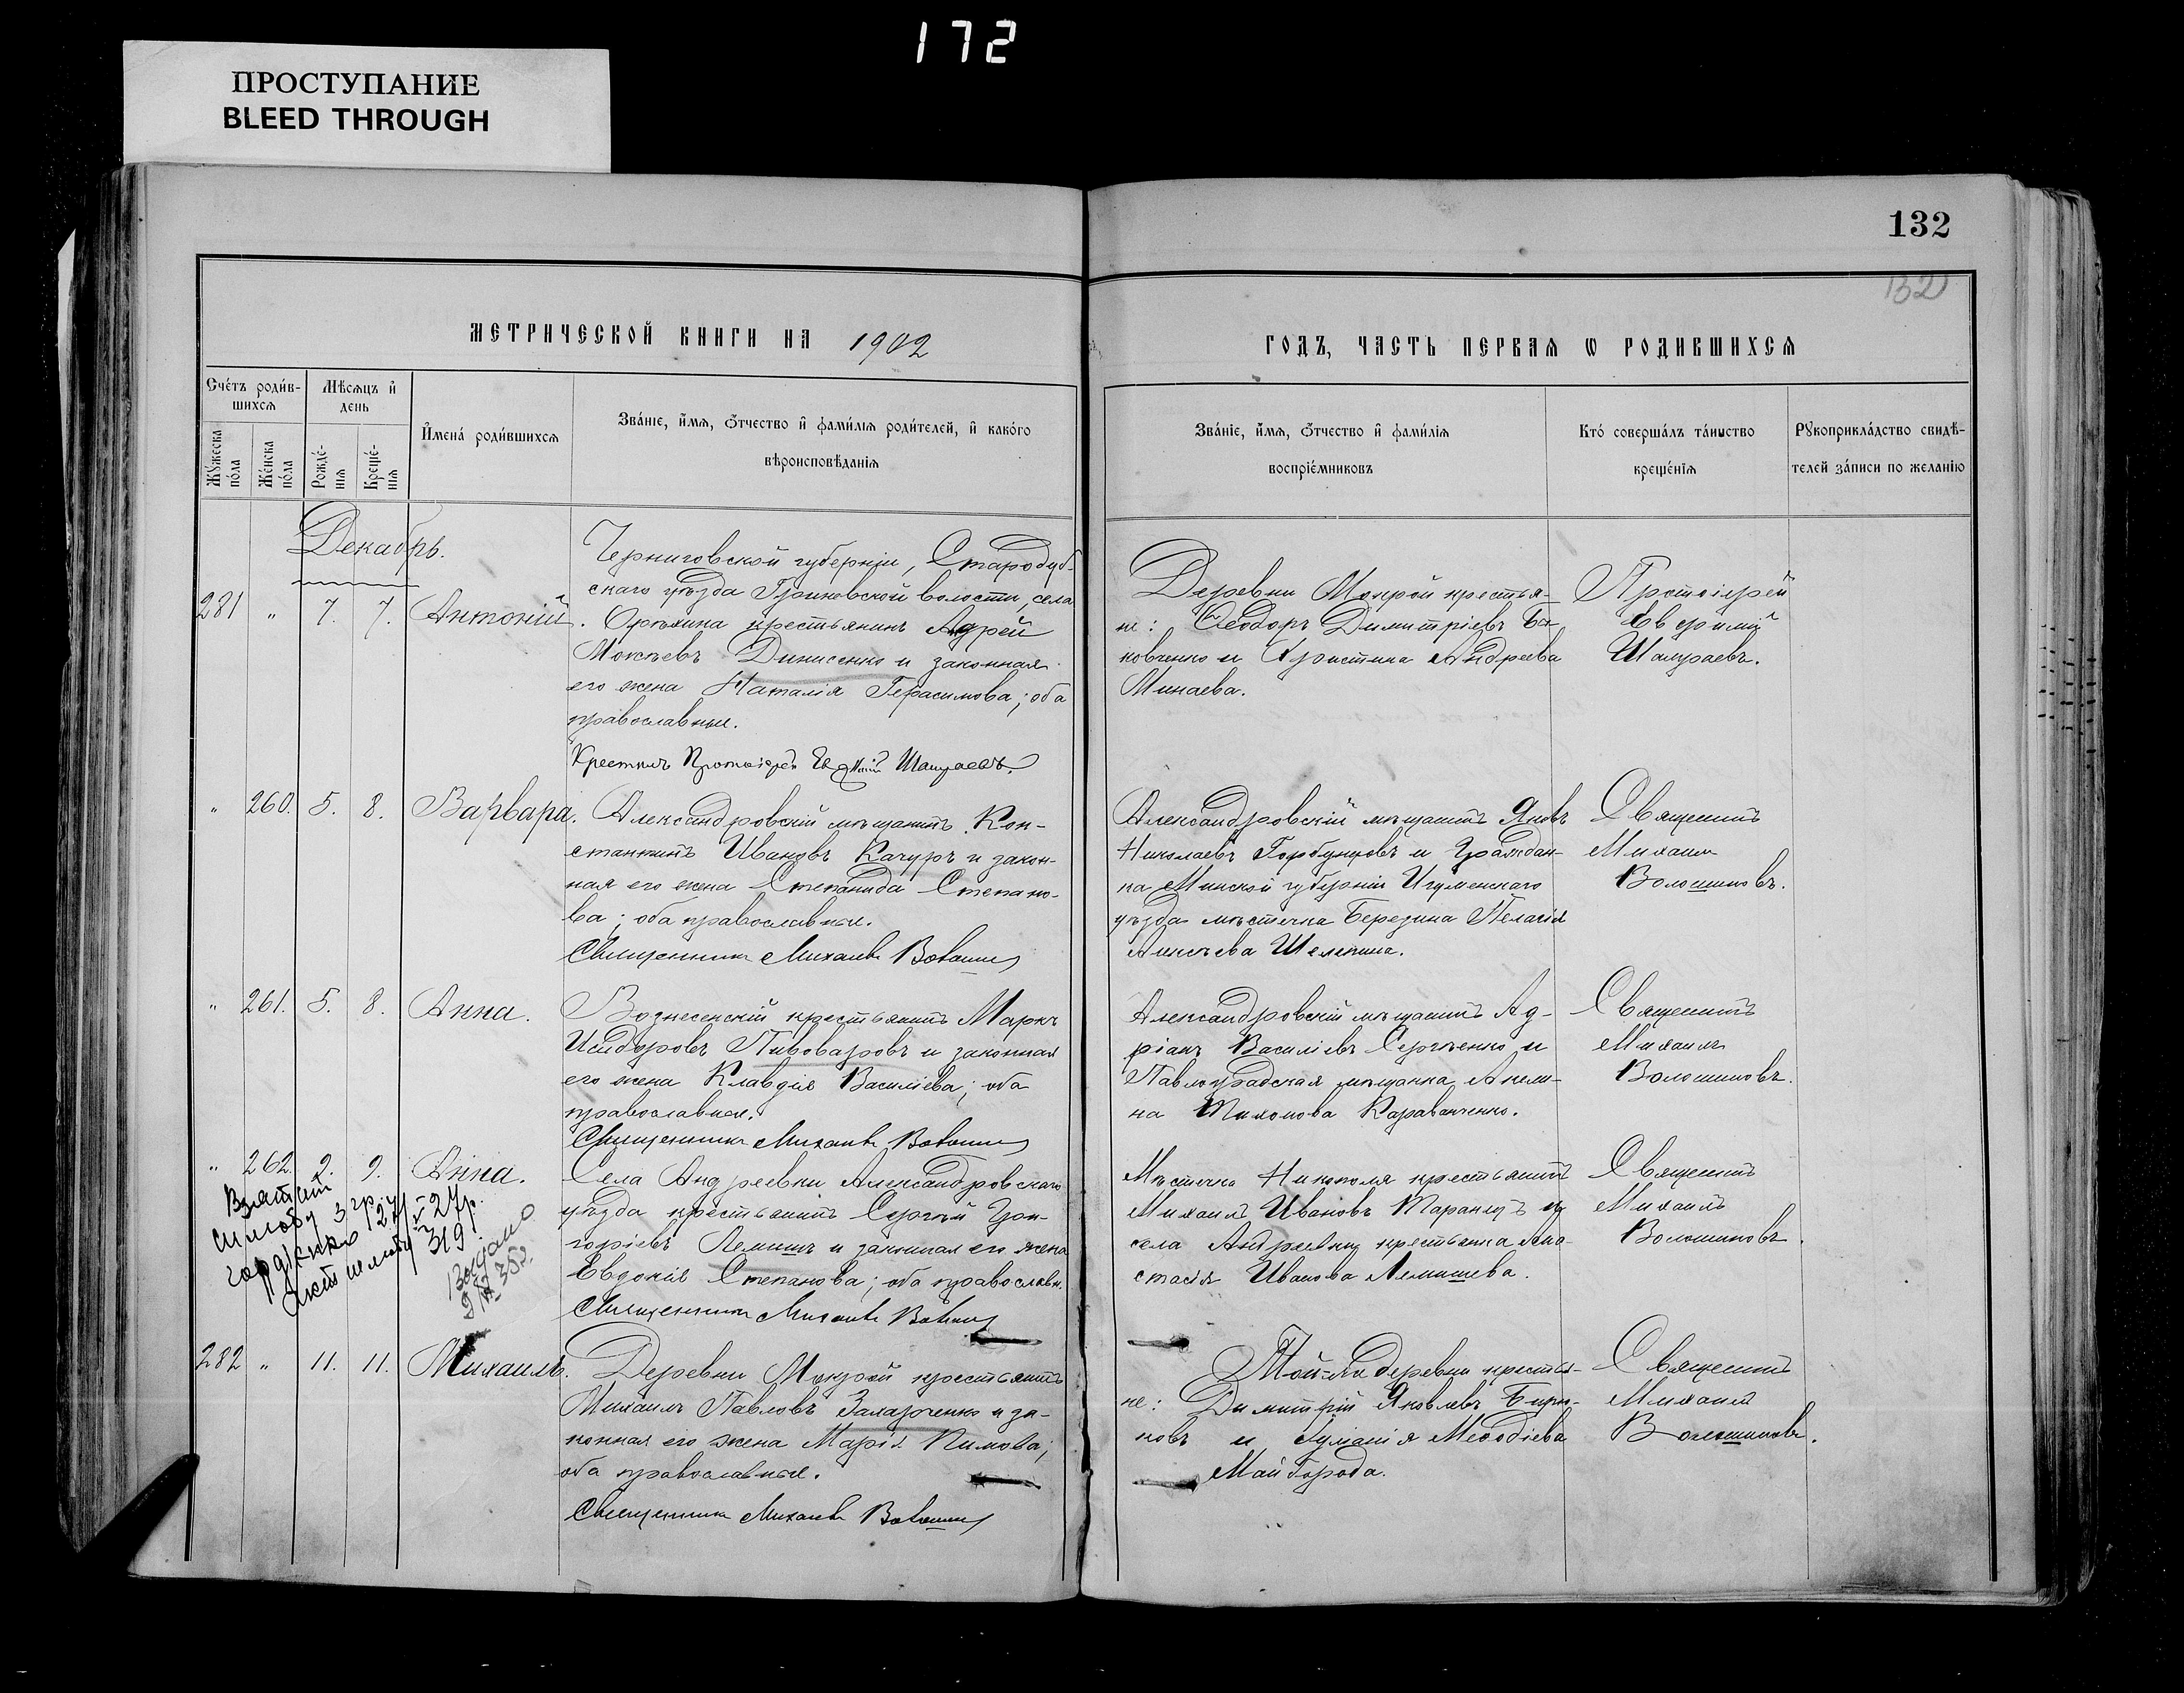 172
ПРОСТУПАНИЕ
BLEED THROUGH
132
132
МЕТРИЧЕСКОЙ КНИГИ НА 1902
ГОДЪ, ЧАСТЬ ПЕРВАЯ Ѡ РОДИВШИХСЯ
Счетъ родившихся
Мѣсяцъ и день
Мужеска пола
Женска пола
Рожденія
Крещенія
Имена родившихся
Званіе, имя, отчество и фамилія родителей, и какого
вѣроисповѣданія
Званіе, имя, отчество и фамилія
воспріемниковъ
Кто совершалъ таинство
крещенія
Рукоприкладство свидѣ-
телей записи по желанію
Декабрь.
281 " 7. 7. Антоній.
Черниговской губерніи, Стародуб-
скаго уѣзда волости, села
крестьянинъ Адрей
Мокіевъ Динисенко и законная
его жена Наталія Герасимова; оба
православные.
Крестилъ Протоіерей
Деревни Мокрой крестья-
не: Ѳеодоръ Димитріевъ Ба-
ковченко и Христина Андреева
Минаева.
Протоіерей
Евфимій
" 260. 5. 8. Варвара.
Александровскій мѣщанинъ Кон-
стантинъ Ивановъ Качуръ и закон-
ная его жена Степанида Степано-
ва; оба православные.
Священникъ Михаилъ
Александровскій мѣщанинъ Яковъ
Николаевъ Горбунцовъ и Граждан-
ка Минской губерніи Игуменскаго
уѣзда мѣстечка Березина Пелагія
Алексѣева
Священникъ
Михаилъ
Волошиновъ.
" 261. 5. 8. Анна.
Вознесенскій крестьянинъ Маркъ
Исидоровъ Пивоваровъ и законная
его жена Клавдія Василіева; оба
православные.
Священникъ Михаилъ
Александровскій мѣщанинъ Ад-
ріанъ Василіевъ Сергѣенко и
Павлоградская мѣщанка Акили-
на Тихонова Караванченко.
Священникъ
Михаилъ
Волошиновъ.
" 262. 9. 9. Анна.
Села Андреевки Александровскаго
уѣзда крестьянинъ Сергѣй Гри-
горіевъ Лемишъ и законная его жена
Евдокія Степанова; оба православн.
Священникъ Михаилъ
Мѣстечка Никополя крестьянинъ
Михаилъ Ивановъ Таранецъ и
села Андреевки крестьянка Ана-
стасія Иванова Лемишева.
Священникъ
Михаилъ
Волошиновъ.
319
Видано
282 " 11. 11. Михаилъ.
Деревни Мокрой крестьянинъ
Михаилъ Павловъ Захарченко и за-
конная его жена Марія Климова;
оба православные.
Священникъ Михаилъ
Той-же деревни крестья-
не: Димитрій Яковлевъ Бирю-
ковъ и Меѳодіева
Майборода.
Священникъ
Михаилъ
Волошиновъ.